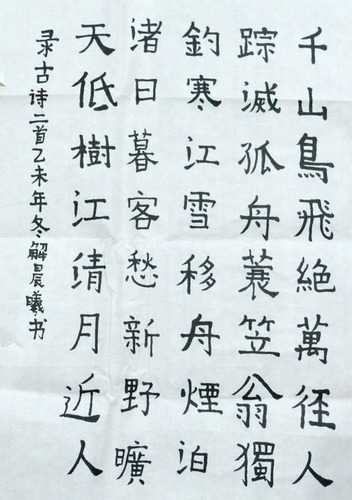 千山鳥飛絕萬徑人
踪滅孤舟蓑笠翁獨
釣寒江雪移舟煙泊
渚日暮客愁新野曠
天低樹江清月近人
录古诗二首乙未年冬解晨曦书